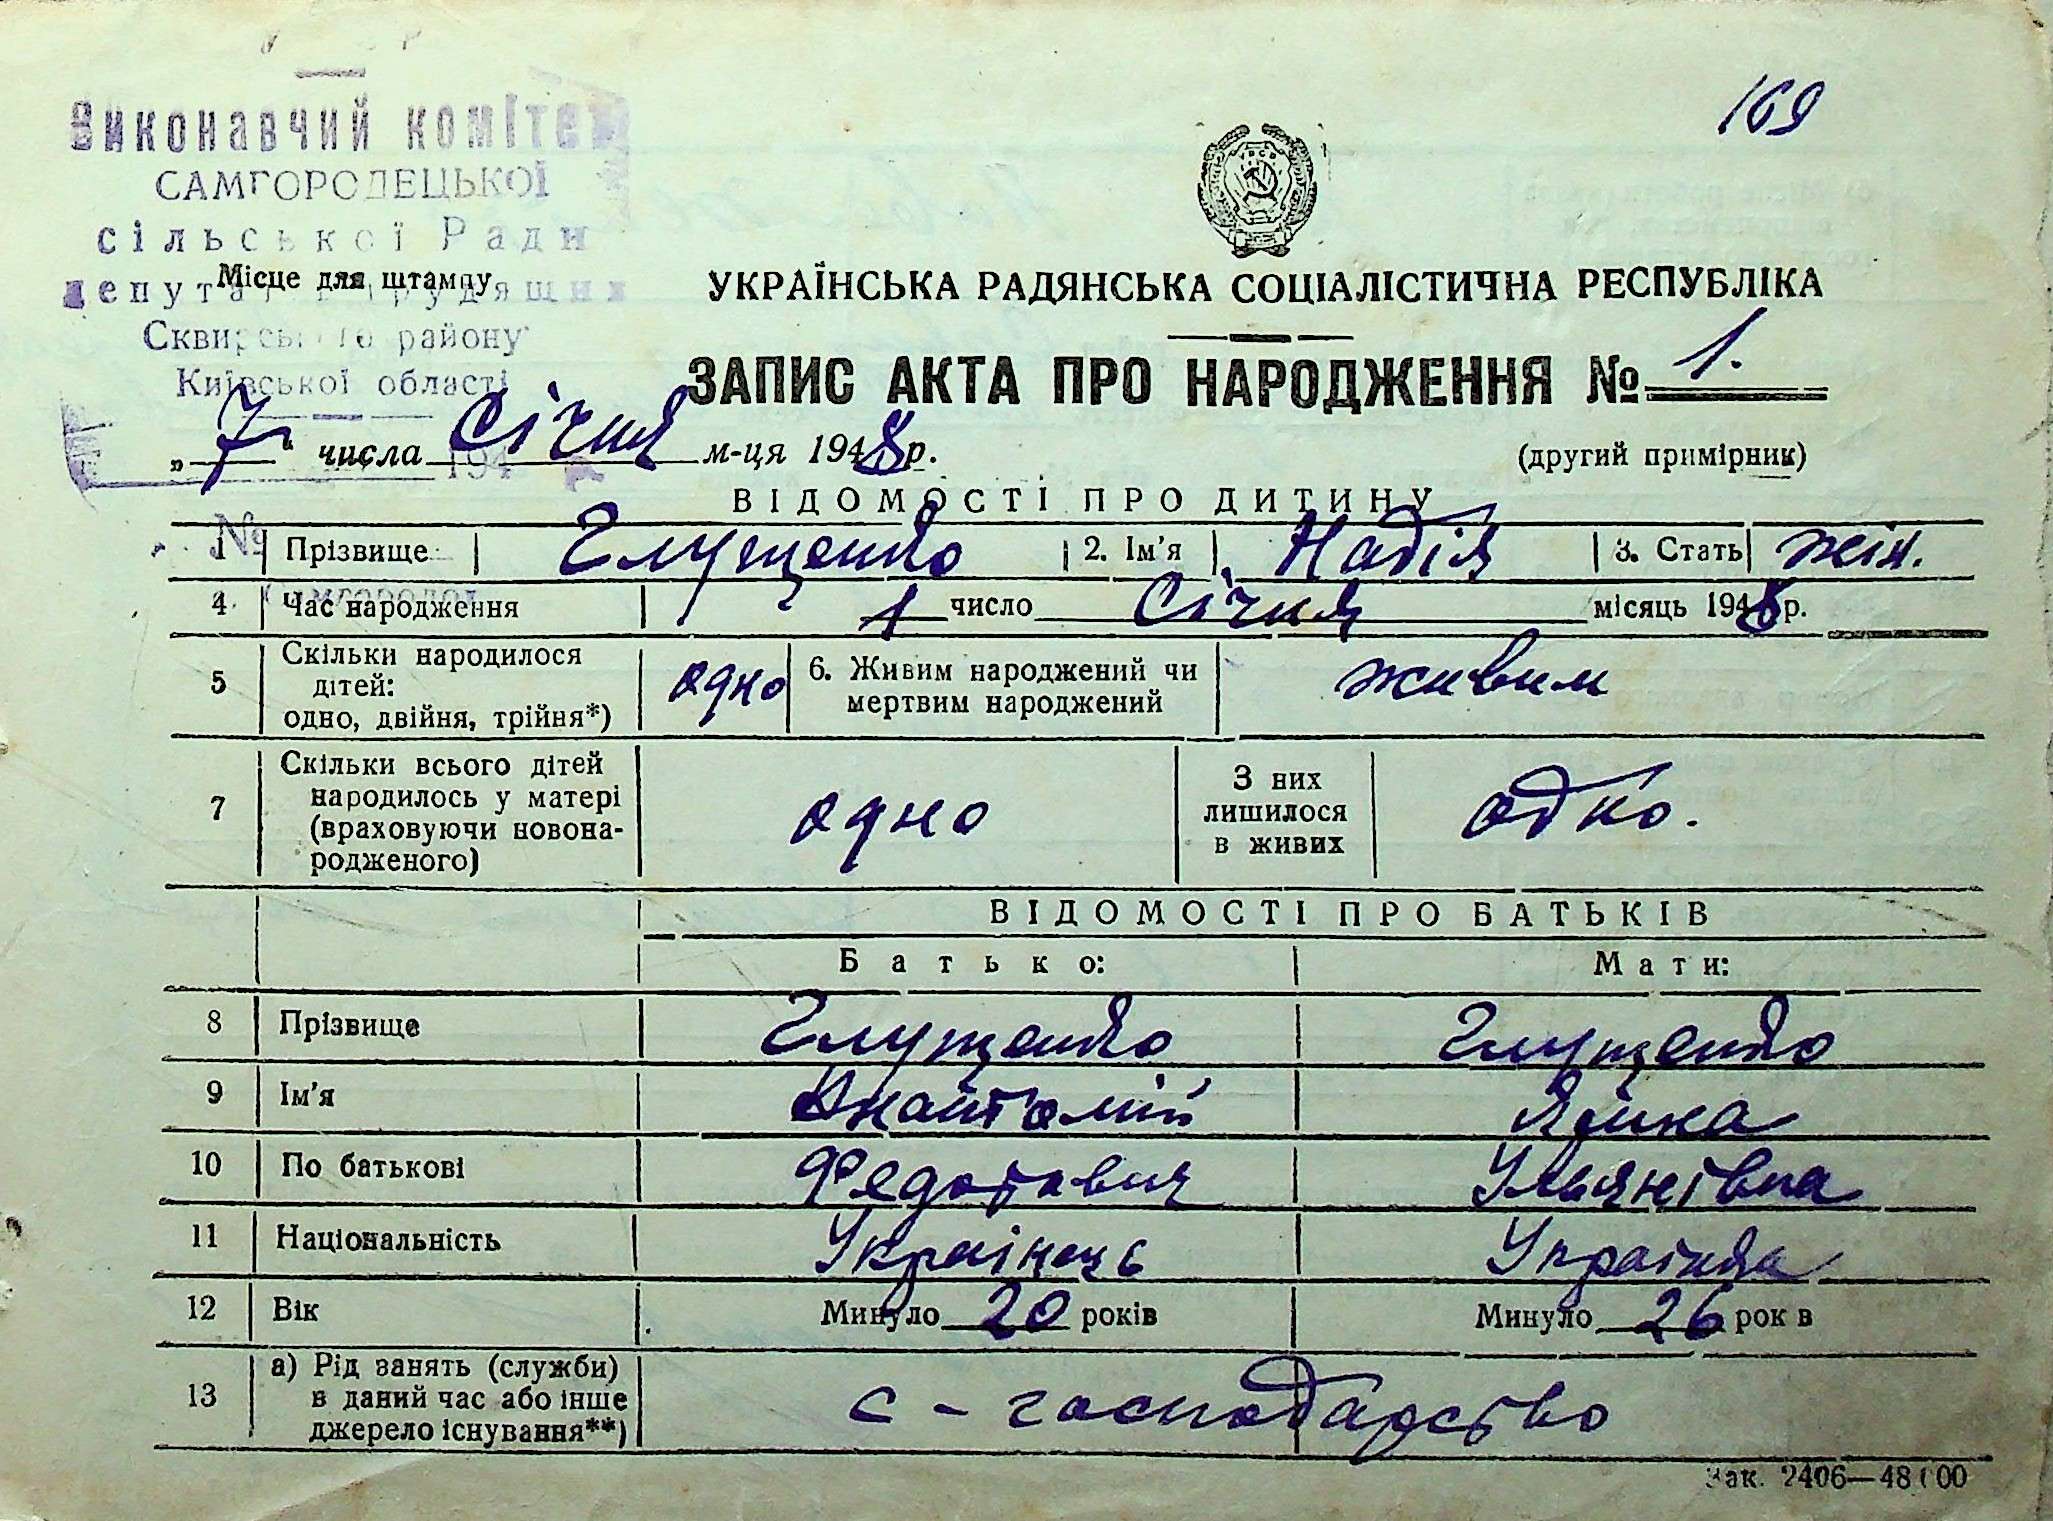 169
Виконавчий комітет
САМГОРОДЕЦЬКОЇ
сільської Ради
депутатів трудящих
Сквирського району
Київської області
194
№
Місце для штампу
УКРАЇНСЬКА РАДЯНСЬКА СОЦІАЛІСТИЧНА РЕСПУБЛІКА
ЗАПИС АКТА ПРО НАРОДЖЕННЯ № 1.
„7" числа Січня м-ця 1948 р.
(другий примірник)
ВІДОМОСТІ ПРО ДИТИНУ
1 Прізвище Глущенко 2. Ім'я Надія 3. Стать жін.
4 Час народження 1 число Січня місяць 1948 р.
5 Скільки народилося дітей: одно, двійня, трійня*) одно 6. Живим народжений чи мертвим народжений живим
7 Скільки всього дітей народилось у матері (враховуючи новона-родженого) одно З них лишилося в живих одно.
ВІДОМОСТІ ПРО БАТЬКІВ
Батько: Мати:
8 Прізвище Глущенко Глущенко
9 Ім'я Анатолій
10 По батькові Федотович Ульянівна
11 Національність Українець Українка
12 Вік Минуло 20 років Минуло 26 рок в
13 а) Рід занять (служби) в даний час або інше джерело існування**) с-господарство
Зак. 2406—48000